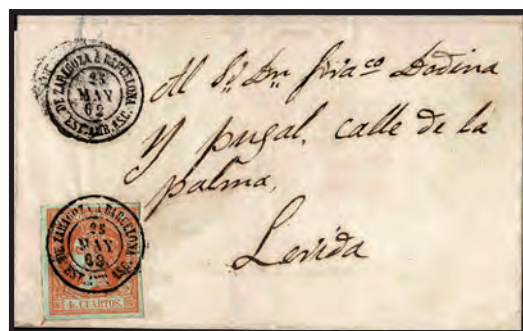 DE ZARAGOZA À BARCELONA
25
MAY
62
EST. AMB. ASC.
Al Sr. Dn. Franco Bodina
y pujal, calle de la
palma,
Lerida
DE ZARAGOZA À BARCELONA
25
MAY
62
EST. ASC.
4 CUARTOS.